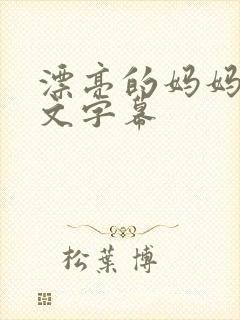 漂亮的妈妈
文字幕
松葉博